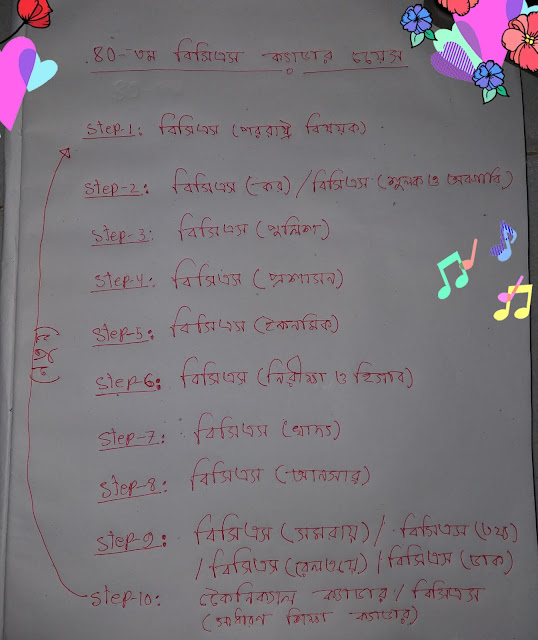 ৪০-তম বিসিএস ক্যাডার চয়েস
Step-1: বিসিএস (পররাষ্ট্র বিষয়ক)
Step-2: বিসিএস (কর) / বিসিএস (শুল্ক ও আবগারি)
Step-3: বিসিএস (পুলিশ)
Step-4: বিসিএস (প্রশাসন)
Step-5: বিসিএস (ইকনমিক)
Step-6: বিসিএস (নিরীক্ষা ও হিসাব)
Step-7: বিসিএস (খাদ্য)
Step-8: বিসিএস (আনসার)
Step-9: বিসিএস (সমবায়) / বিসিএস (তথ্য)
/ বিসিএস (রেলওয়ে) / বিসিএস (ডাক)
Step-10: টেকনিক্যাল ক্যাডার / বিসিএস
(সাধারণ শিক্ষা ক্যাডার)